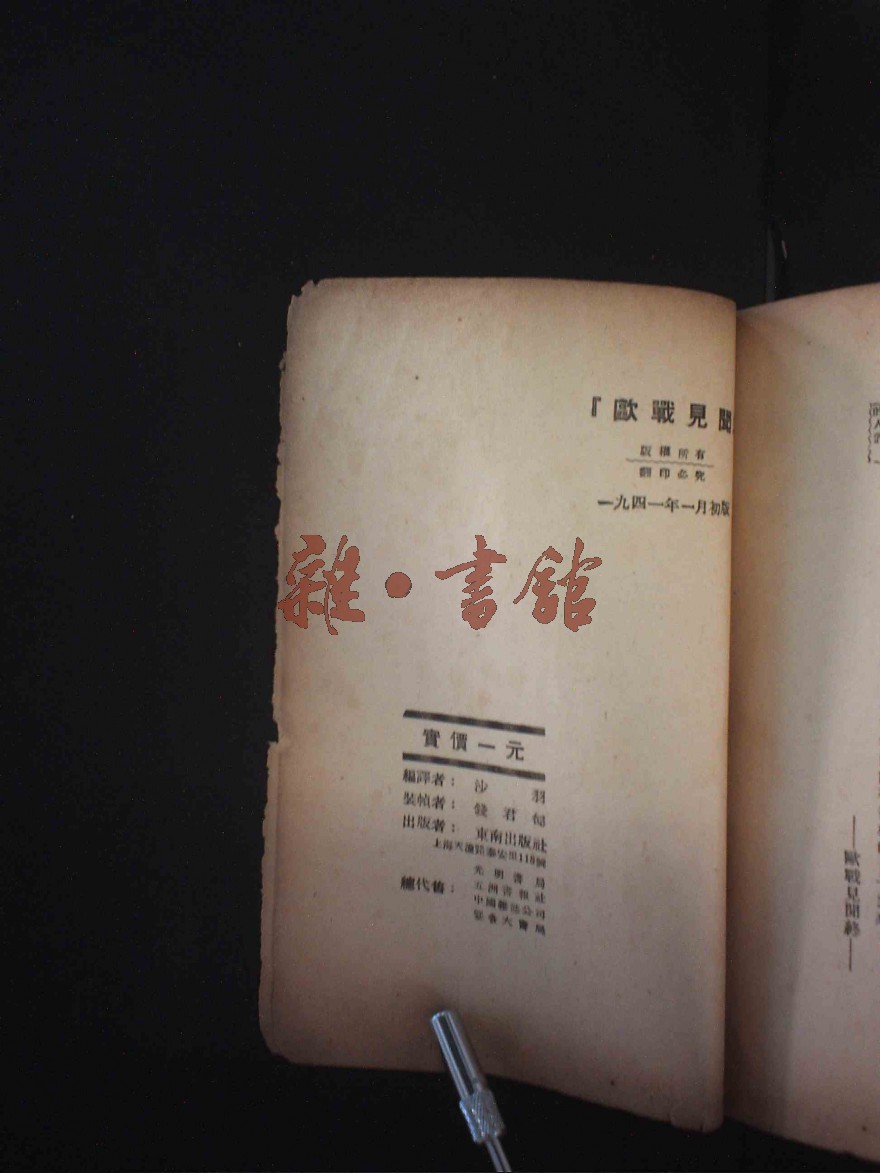 『歐戰見聞
版權所有
翻印必究
一九四一年一月初版
雜·書館
實價一元
編譯者：沙羽
裝幀者：錢君匋
出版者：東南出版社
上海天潼路泰安里118號
總代售：光明書局
五洲書報社
中國雜誌公司
各大書局
——歐戰見聞終——